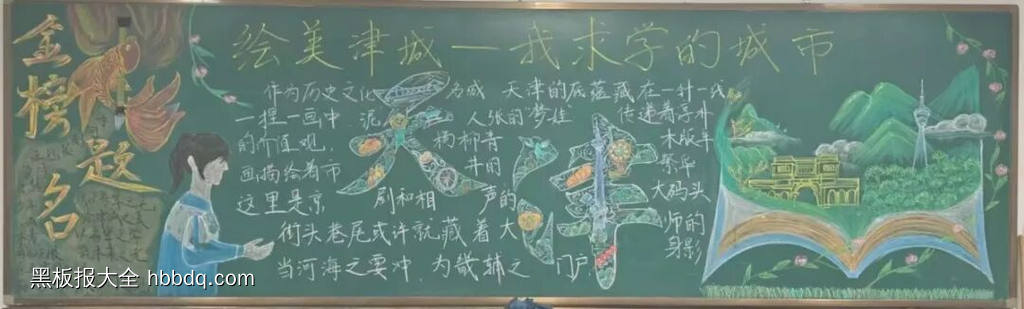 金榜题名
绘美津城—我求学的城市
天津
作为历史文化 为城 天津的底蕴藏在一针一线
一捏一画中 泥人张的"梦娃 传递着淳朴
的价值观, 杨柳青 木版年
画描绘着市井的 繁华
这里是京剧和相声的 大码头
街头巷尾或许就藏着大师的身影
当河海之要冲,为畿辅之门户
黑板报大全 hbbdq.com